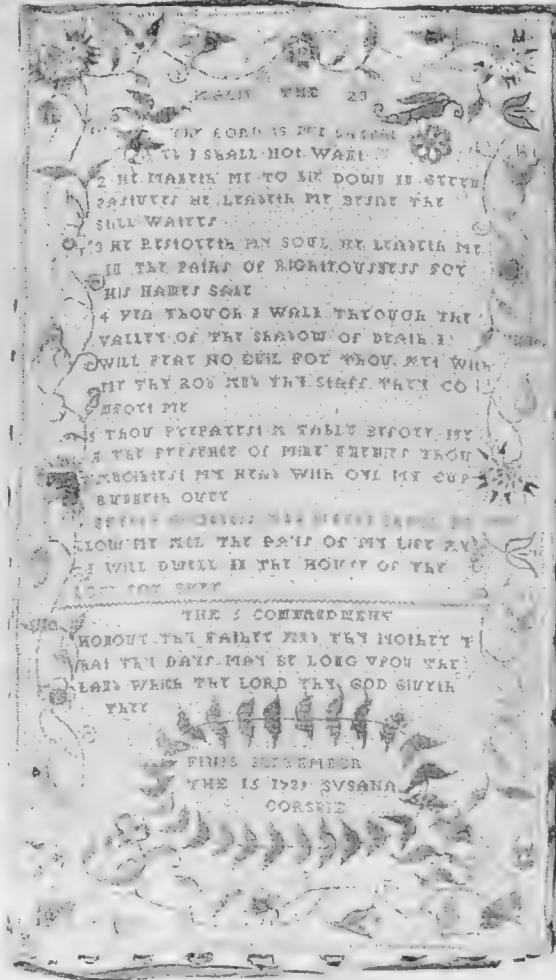 PSALM THE 23
THE LORD IS MY SHEPH
I SHALL NOT WANT
2 HE MAKETH ME TO LIE DOWN IN GREEN
PASTURES HE LEADETH ME BESIDE THE
STILL WATERS
3 HE RESTORETH MY SOUL HE LEADETH ME
IN THE PATHS OF RIGHTOUSNESS FOR
HIS NAMES SAKE
4 YEA THOUGH I WALK THROUGH THE
VALLEY OF THE SHADOW OF DEATH I
WILL FEAR NO EUIL FOR THOU ART WITH
ME THY ROD AND THY STAFF THEY CO
MFORT ME
5 THOU PREPAREST A TABLE BEFORE ME
THE PRESENCE OF MINE ENEMIES THOU
ANOINTEST MY HEAD WITH OYL MY CUP
RUNNETH OUER
LOW ME ALL THE DAYS OF MY LIFE AN
I WILL DWELL IN THE HOUSE OF THE
LORD FOR EUER
THE 5 COMENDMENT
HONOUR THY FATHER AND THY MOTHER T
HAT THY DAYS MAY BE LONG VPON THE
LAND WHICH THE LORD THY GOD GIUETH
THEE
FINIS SEPTEMBER
THE 15 SVSANA